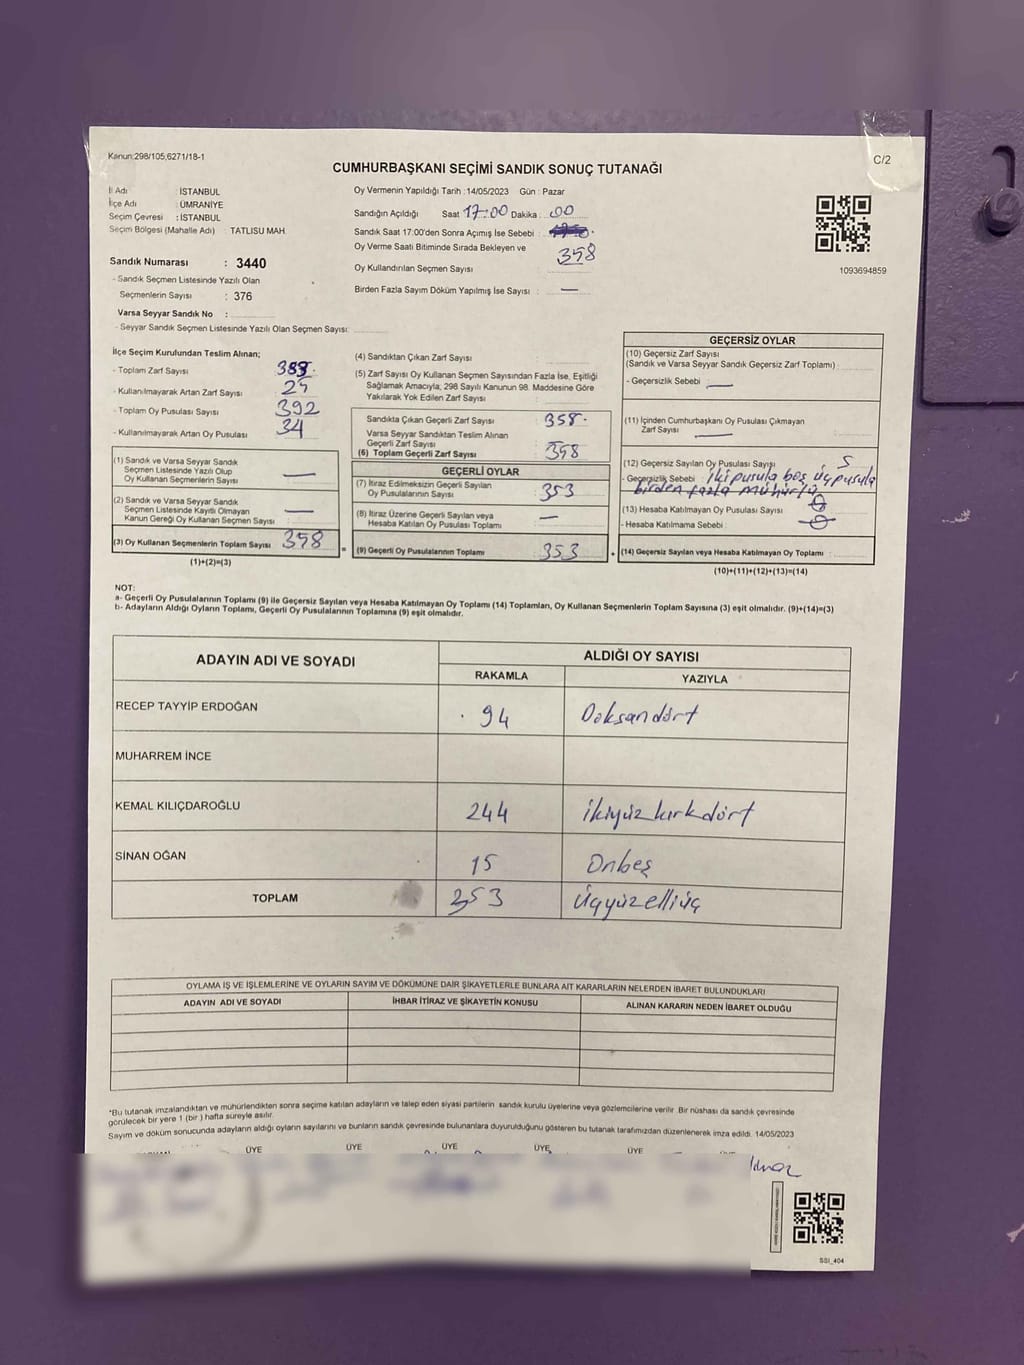 Kanun:298/105,6271/18-1
C/2
CUMHURBAŞKANI SEÇİMİ SANDIK SONUÇ TUTANAĞI
İl Adı : İSTANBUL
İlçe Adı : ÜMRANİYE
Seçim Çevresi : İSTANBUL
Seçim Bölgesi (Mahalle Adı) : TATLISU MAH.
Sandık Numarası : 3440
- Sandık Seçmen Listesinde Yazılı Olan
Seçmenlerin Sayısı : 376
Varsa Seyyar Sandık No :
- Seyyar Sandık Seçmen Listesinde Yazılı Olan Seçmen Sayısı:
Oy Vermenin Yapıldığı Tarih :14/05/2023 Gün : Pazar
Sandığın Açıldığı Saat 17:00 Dakika : 00
Sandık Saat 17:00'den Sonra Açımış İse Sebebi :
Oy Verme Saati Bitiminde Sırada Bekleyen ve
Oy Kullandırılan Seçmen Sayısı 358
Birden Fazla Sayım Döküm Yapılmış İse Sayısı : —
1093694859
İlçe Seçim Kurulundan Teslim Alınan;
- Toplam Zarf Sayısı
- Kullanılmayarak Artan Zarf Sayısı
- Toplam Oy Pusulası Sayısı 392
- Kullanılmayarak Artan Oy Pusulası 34
(1) Sandık ve Varsa Seyyar Sandık
Seçmen Listesinde Yazılı Olup
Oy Kullanan Seçmenlerin Sayısı —
(2) Sandık ve Varsa Seyyar Sandık
Seçmen Listesinde Kayıtlı Olmayan
Kanun Gereği Oy Kullanan Seçmen Sayısı —
(3) Oy Kullanan Seçmenlerin Toplam Sayısı 358
(1)+(2)=(3)
(4) Sandıktan Çıkan Zarf Sayısı
(5) Zarf Sayısı Oy Kullanan Seçmen Sayısından Fazla İse, Eşitliği
Sağlamak Amacıyla; 298 Sayılı Kanunun 98. Maddesine Göre
Yakılarak Yok Edilen Zarf Sayısı
Sandıkta Çıkan Geçerli Zarf Sayısı 358
Varsa Seyyar Sandıktan Teslim Alınan
Geçerli Zarf Sayısı
(6) Toplam Geçerli Zarf Sayısı 358
GEÇERLİ OYLAR
(7) İtiraz Edilmeksizin Geçerli Sayılan
Oy Pusulalarının Sayısı 353
(8) İtiraz Üzerine Geçerli Sayılan veya
Hesaba Katılan Oy Pusulası Toplamı —
= (9) Geçerli Oy Pusulalarının Toplamı 353 +
GEÇERSİZ OYLAR
(10) Geçersiz Zarf Sayısı
(Sandık ve Varsa Seyyar Sandık Geçersiz Zarf Toplamı)
- Geçersizlik Sebebi —
(11) İçinden Cumhurbaşkanı Oy Pusulası Çıkmayan
Zarf Sayısı —
(12) Geçersiz Sayılan Oy Pusulası Sayısı 5
- Geçersizlik Sebebi İki pusula boş üç pusula
birden fazla mühürlü
(13) Hesaba Katılmayan Oy Pusulası Sayısı
- Hesaba Katılmama Sebebi
(14) Geçersiz Sayılan veya Hesaba Katılmayan Oy Toplamı :
(10)+(11)+(12)+(13)=(14)
NOT:
a- Geçerli Oy Pusulalarının Toplamı (9) ile Geçersiz Sayılan veya Hesaba Katılmayan Oy Toplamı (14) Toplamları, Oy Kullanan Seçmenlerin Toplam Sayısına (3) eşit olmalıdır. (9)+(14)=(3)
b- Adayların Aldığı Oyların Toplamı, Geçerli Oy Pusulalarının Toplamına (9) eşit olmalıdır.
ADAYIN ADI VE SOYADI
ALDIĞI OY SAYISI
RAKAMLA YAZIYLA
RECEP TAYYİP ERDOĞAN 94 Doksandört
MUHARREM İNCE
KEMAL KILIÇDAROĞLU 244 ikiyüzkırkdört
SİNAN OĞAN 15 Onbeş
TOPLAM 353 Üçyüzelliüç
OYLAMA İŞ VE İŞLEMLERİNE VE OYLARIN SAYIM VE DÖKÜMÜNE DAİR ŞİKAYETLERLE BUNLARA AİT KARARLARIN NELERDEN İBARET BULUNDUKLARI
ADAYIN ADI VE SOYADI İHBAR İTİRAZ VE ŞİKAYETİN KONUSU ALINAN KARARIN NEDEN İBARET OLDUĞU
*Bu tutanak imzalandıktan ve mühürlendikten sonra seçime katılan adayların ve talep eden siyasi partilerin sandık kurulu üyelerine veya gözlemcilerine verilir. Bir nüshası da sandık çevresinde
görülecek bir yere 1 (bir ) hafta süreyle asılır.
Sayım ve döküm sonucunda adayların aldığı oyların sayılarını ve bunların sandık çevresinde bulunanlara duyurulduğunu gösteren bu tutanak tarafımızdan düzenlenerek imza edildi. 14/05/2023
ÜYE ÜYE ÜYE ÜYE ÜYE
SSI_404